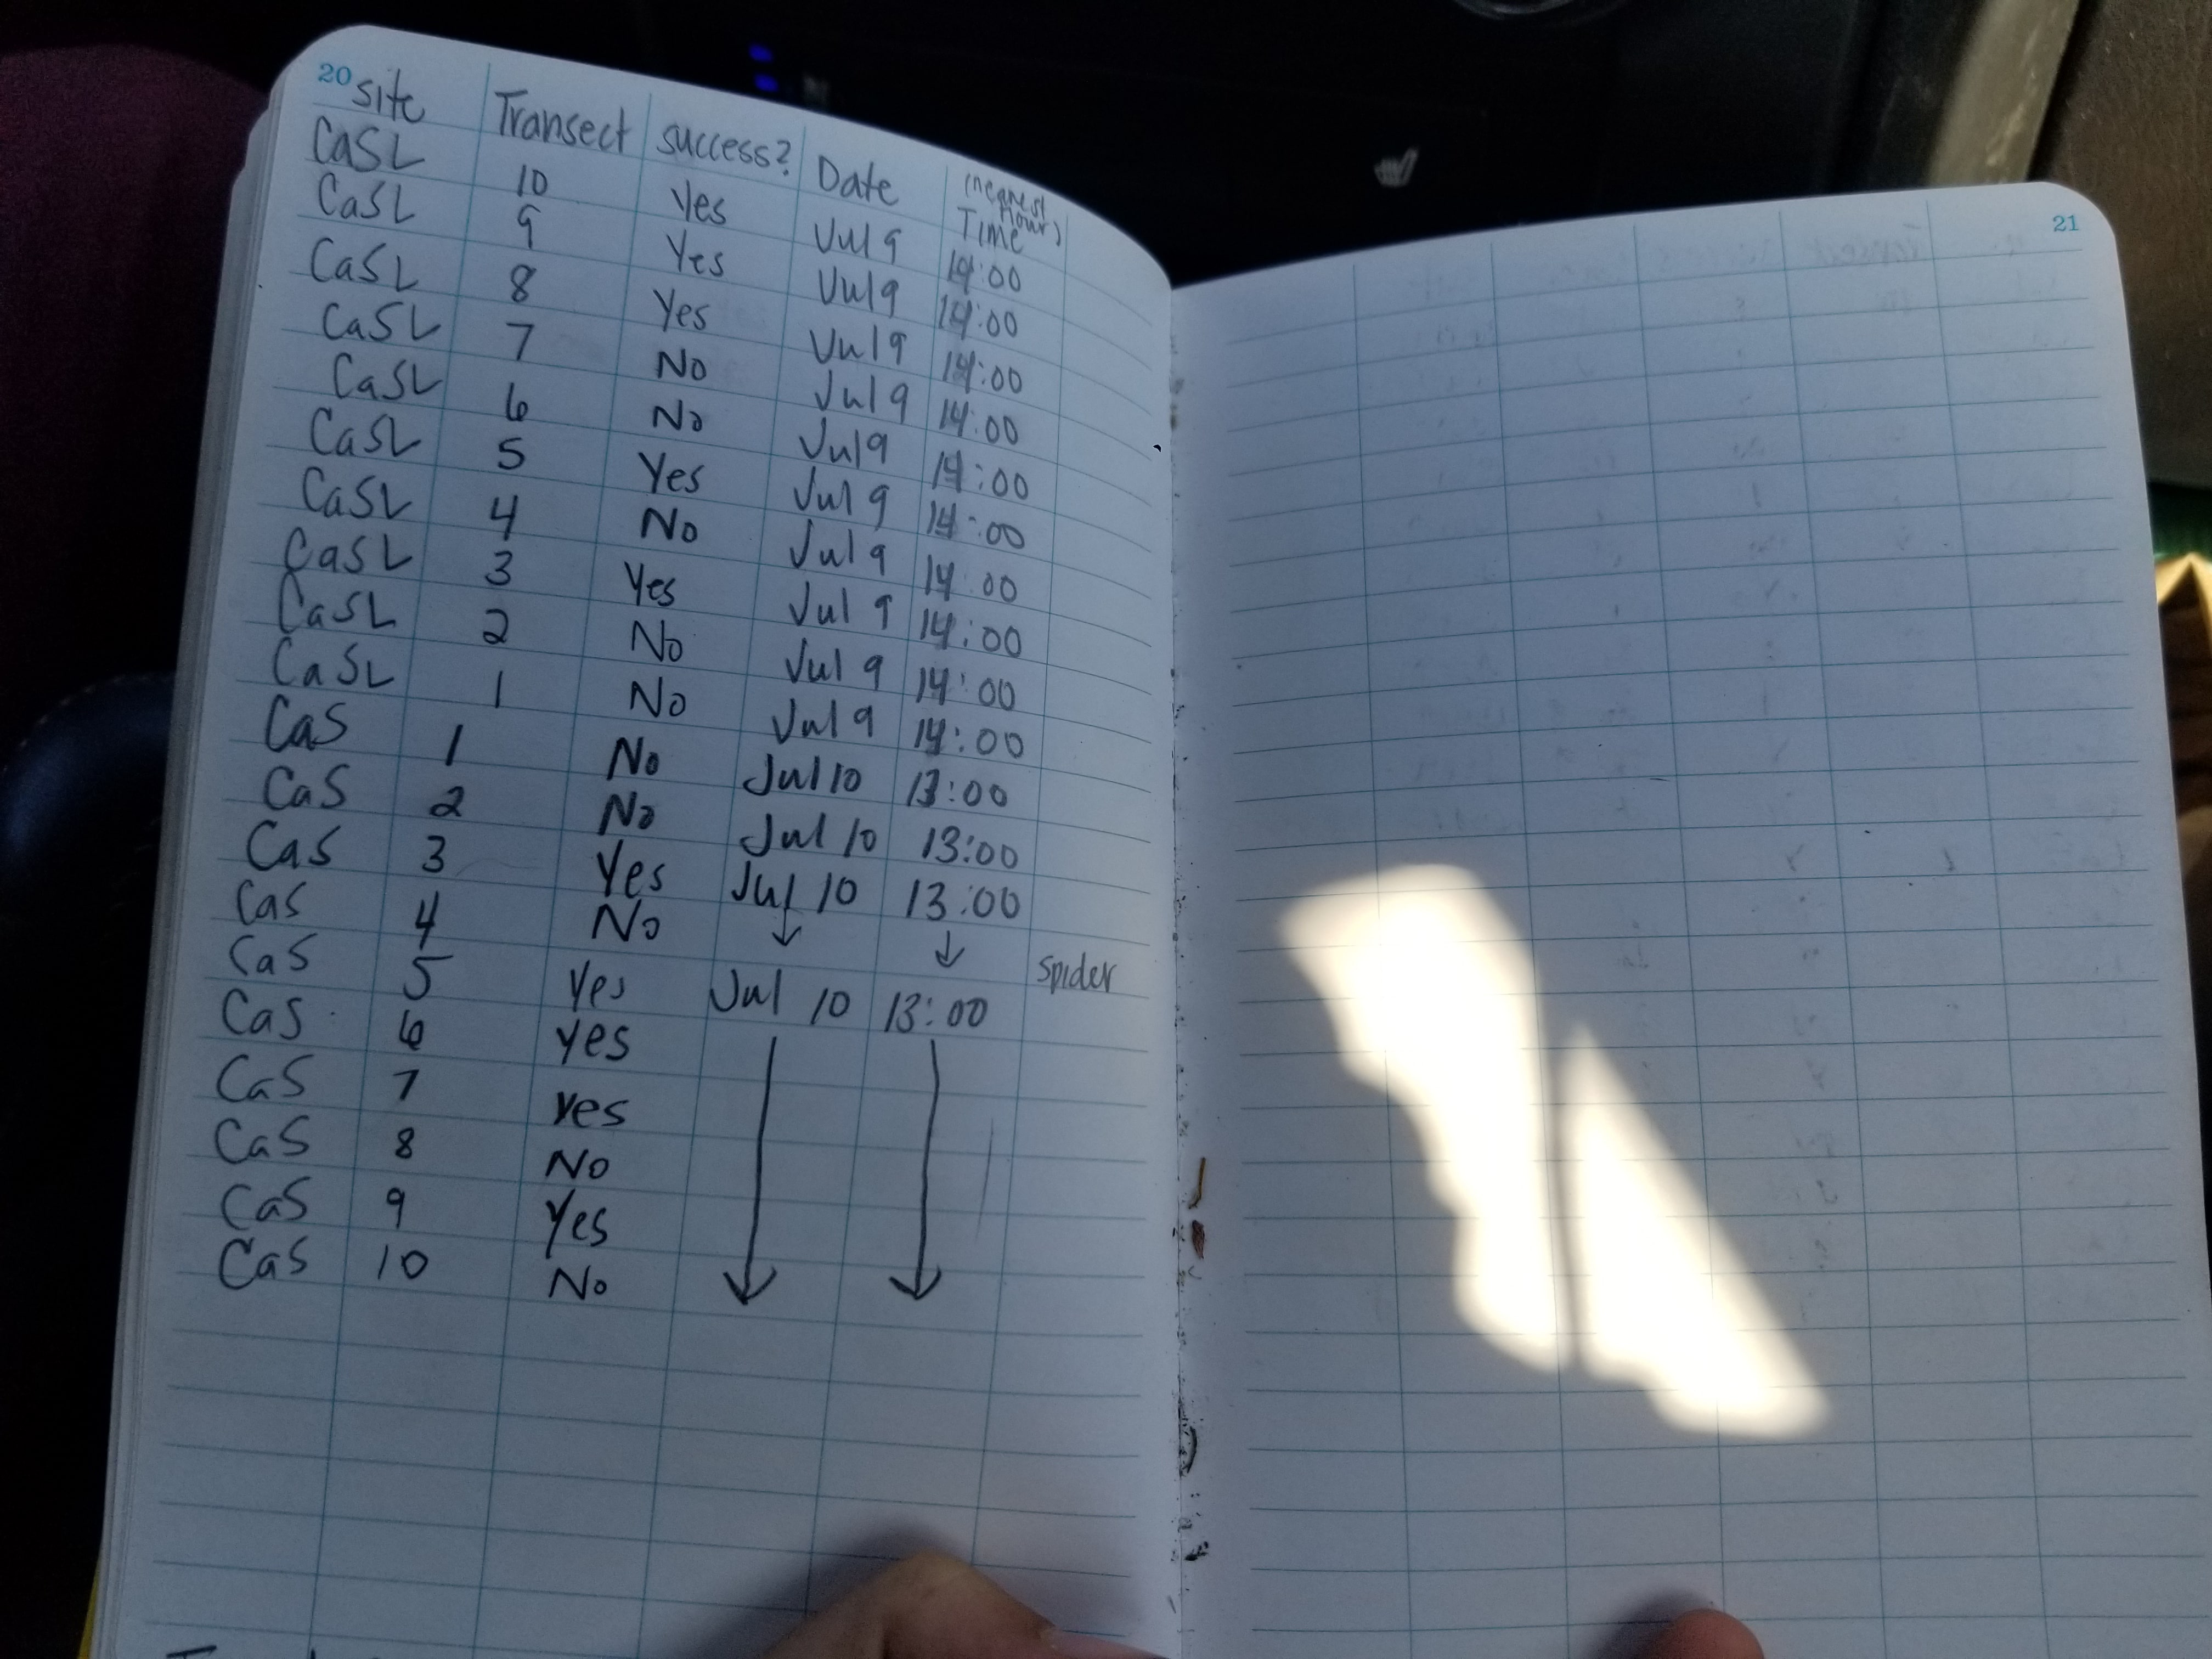 20 21
Site Transect success? Date (nearest hour) Time
CaSL 10 Yes Jul 9 14:00
CaSL 9 Yes Jul 9 14:00
CaSL 8 Yes Jul 9 14:00
CaSL 7 No Jul 9 14:00
CaSL 6 No Jul 9 14:00
CaSL 5 Yes Jul 9 14:00
CaSL 4 No Jul 9 14:00
CaSL 3 Yes Jul 9 14:00
CaSL 2 No Jul 9 14:00
CaSL 1 No Jul 9 14:00
CaS 1 No Jul 10 13:00
CaS 2 No Jul 10 13:00
CaS 3 Yes Jul 10 13:00
CaS 4 No ↓ ↓
CaS 5 Yes Jul 10 13:00 spider
CaS 6 Yes
CaS 7 Yes
CaS 8 No
CaS 9 Yes
CaS 10 No